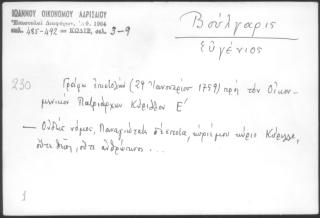 ΙΩΑΝΝΟΥ ΟΙΚΟΝΟΜΟΥ ΛΑΡΙΣΑΙΟΥ
Ἐπιστολαὶ Διαφόρων, Ἀθ. 1964
σελ. 485-492 = ΚΩΔΙΞ, σελ. 3-9
Βούλγαρις
Εὐγένιος
230
Γράφει ἐπιστολὴν (29 Ἰανουαρίου 1759) πρὸς τὸν Οἰκου-
μενικὸν Πατριάρχην Κύριλλον Ε΄
— Οὐδεὶς νόμος, Παναγιώτατε δέσποτα, κύριέ μου κύριε Κύριλλε,
οὔτε θεῖος, οὔτε ἀνθρώπινος ...
1